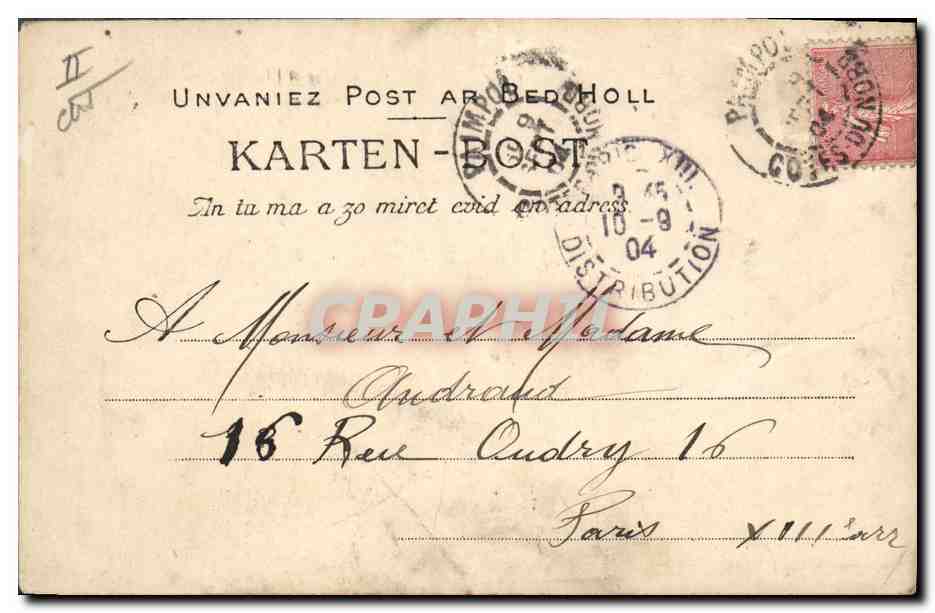 II
UNVANIEZ POST AR BED HOLL
KARTEN-POST
An tu ma a zo miret evid an adress
PAIMPOL
9
04
PAIMPOL
04
COTES DU NORD
PARIS XIII
3 45
10 -9
04
DISTRIBUTION
CPARAMA
A Monsieur et Madame
Andraud
16 Rue Oudry 16
Paris XIIIe arr